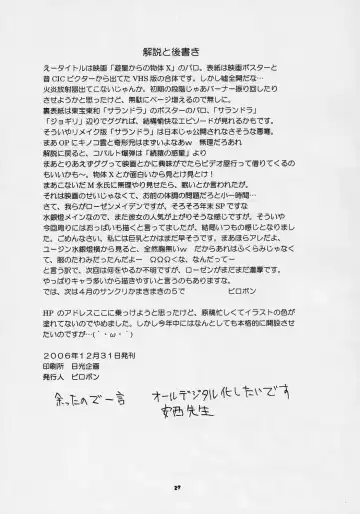 解説と後書き
えータイトルは映画「遊星からの物体X」のパロ。表紙は映画ポスターと
昔CICビクターから出てたVHS版の合体です。しかし嘘全開だな…
火炎放射器出てこないじゃんか。初期の段階じゃあバーナー振り回したり
させようかと思ったけど、無駄にページ増えるので無しに。
裏表紙は東宝東和の「サランドラ」のポスターのパロ。「サランドラ」
「ジョギリ」辺りでググれば、結構愉快なエピソードが見れるかもです。
そういやリメイク版「サランドラ」は日本じゃ公開されなさそうな悪寒。
まあOPにキノコ雲と奇形児はまずいよなあw 無理だろうあれ
解説に戻ると、コバルト爆弾は「続猿の惑星」より
まあとりあえずググって映画とかに興味がでたらビデオ屋行って借りてくるの
もいいかも~。物体Xとか面白いから見とけ見とけ!
まあこないだM永氏に無理やり見せたら、眠いとか言われたが。
それは映画のせいじゃなくて、お前の体調の問題だろうと小一時間…
さて、我らがローゼンメイデンですが、そろそろ年末SPですな
水銀燈メインなので、また彼女の人気が上がりそうな感じですが。そういや
今回周りにはおっぱいも描くと言ってましたが、結局いつもの感じとなりまし
た。ごめんなさい。私には巨乳とかはまだ早そうです。まあほらアレだよ、
ユージン水銀燈横から見ると、全然胸無いw だからあれはふくらみじゃなく
て、服のたわみだったんだよー ΩΩΩ<な、なんだってー
と言う訳で、次回は何をやるか不明ですが、ローゼンがまだまだ濃厚です。
やっぱりキャラ多いから描きやすいと言うのもありますな。
では、次は4月のサンクリかまきまきの5で ピロポン
HPのアドレスここに乗っけようと思ったけど、原稿忙しくてイラストの色が
塗れてないのでやめました。しかし今年中にはなんとしても本格的に開設させ
たいのですが…(´・ω・`)
2006年12月31日発刊
印刷所 日光企画
発行人 ピロポン
余ったので一言 オールデジタル化したいです
安西先生
29